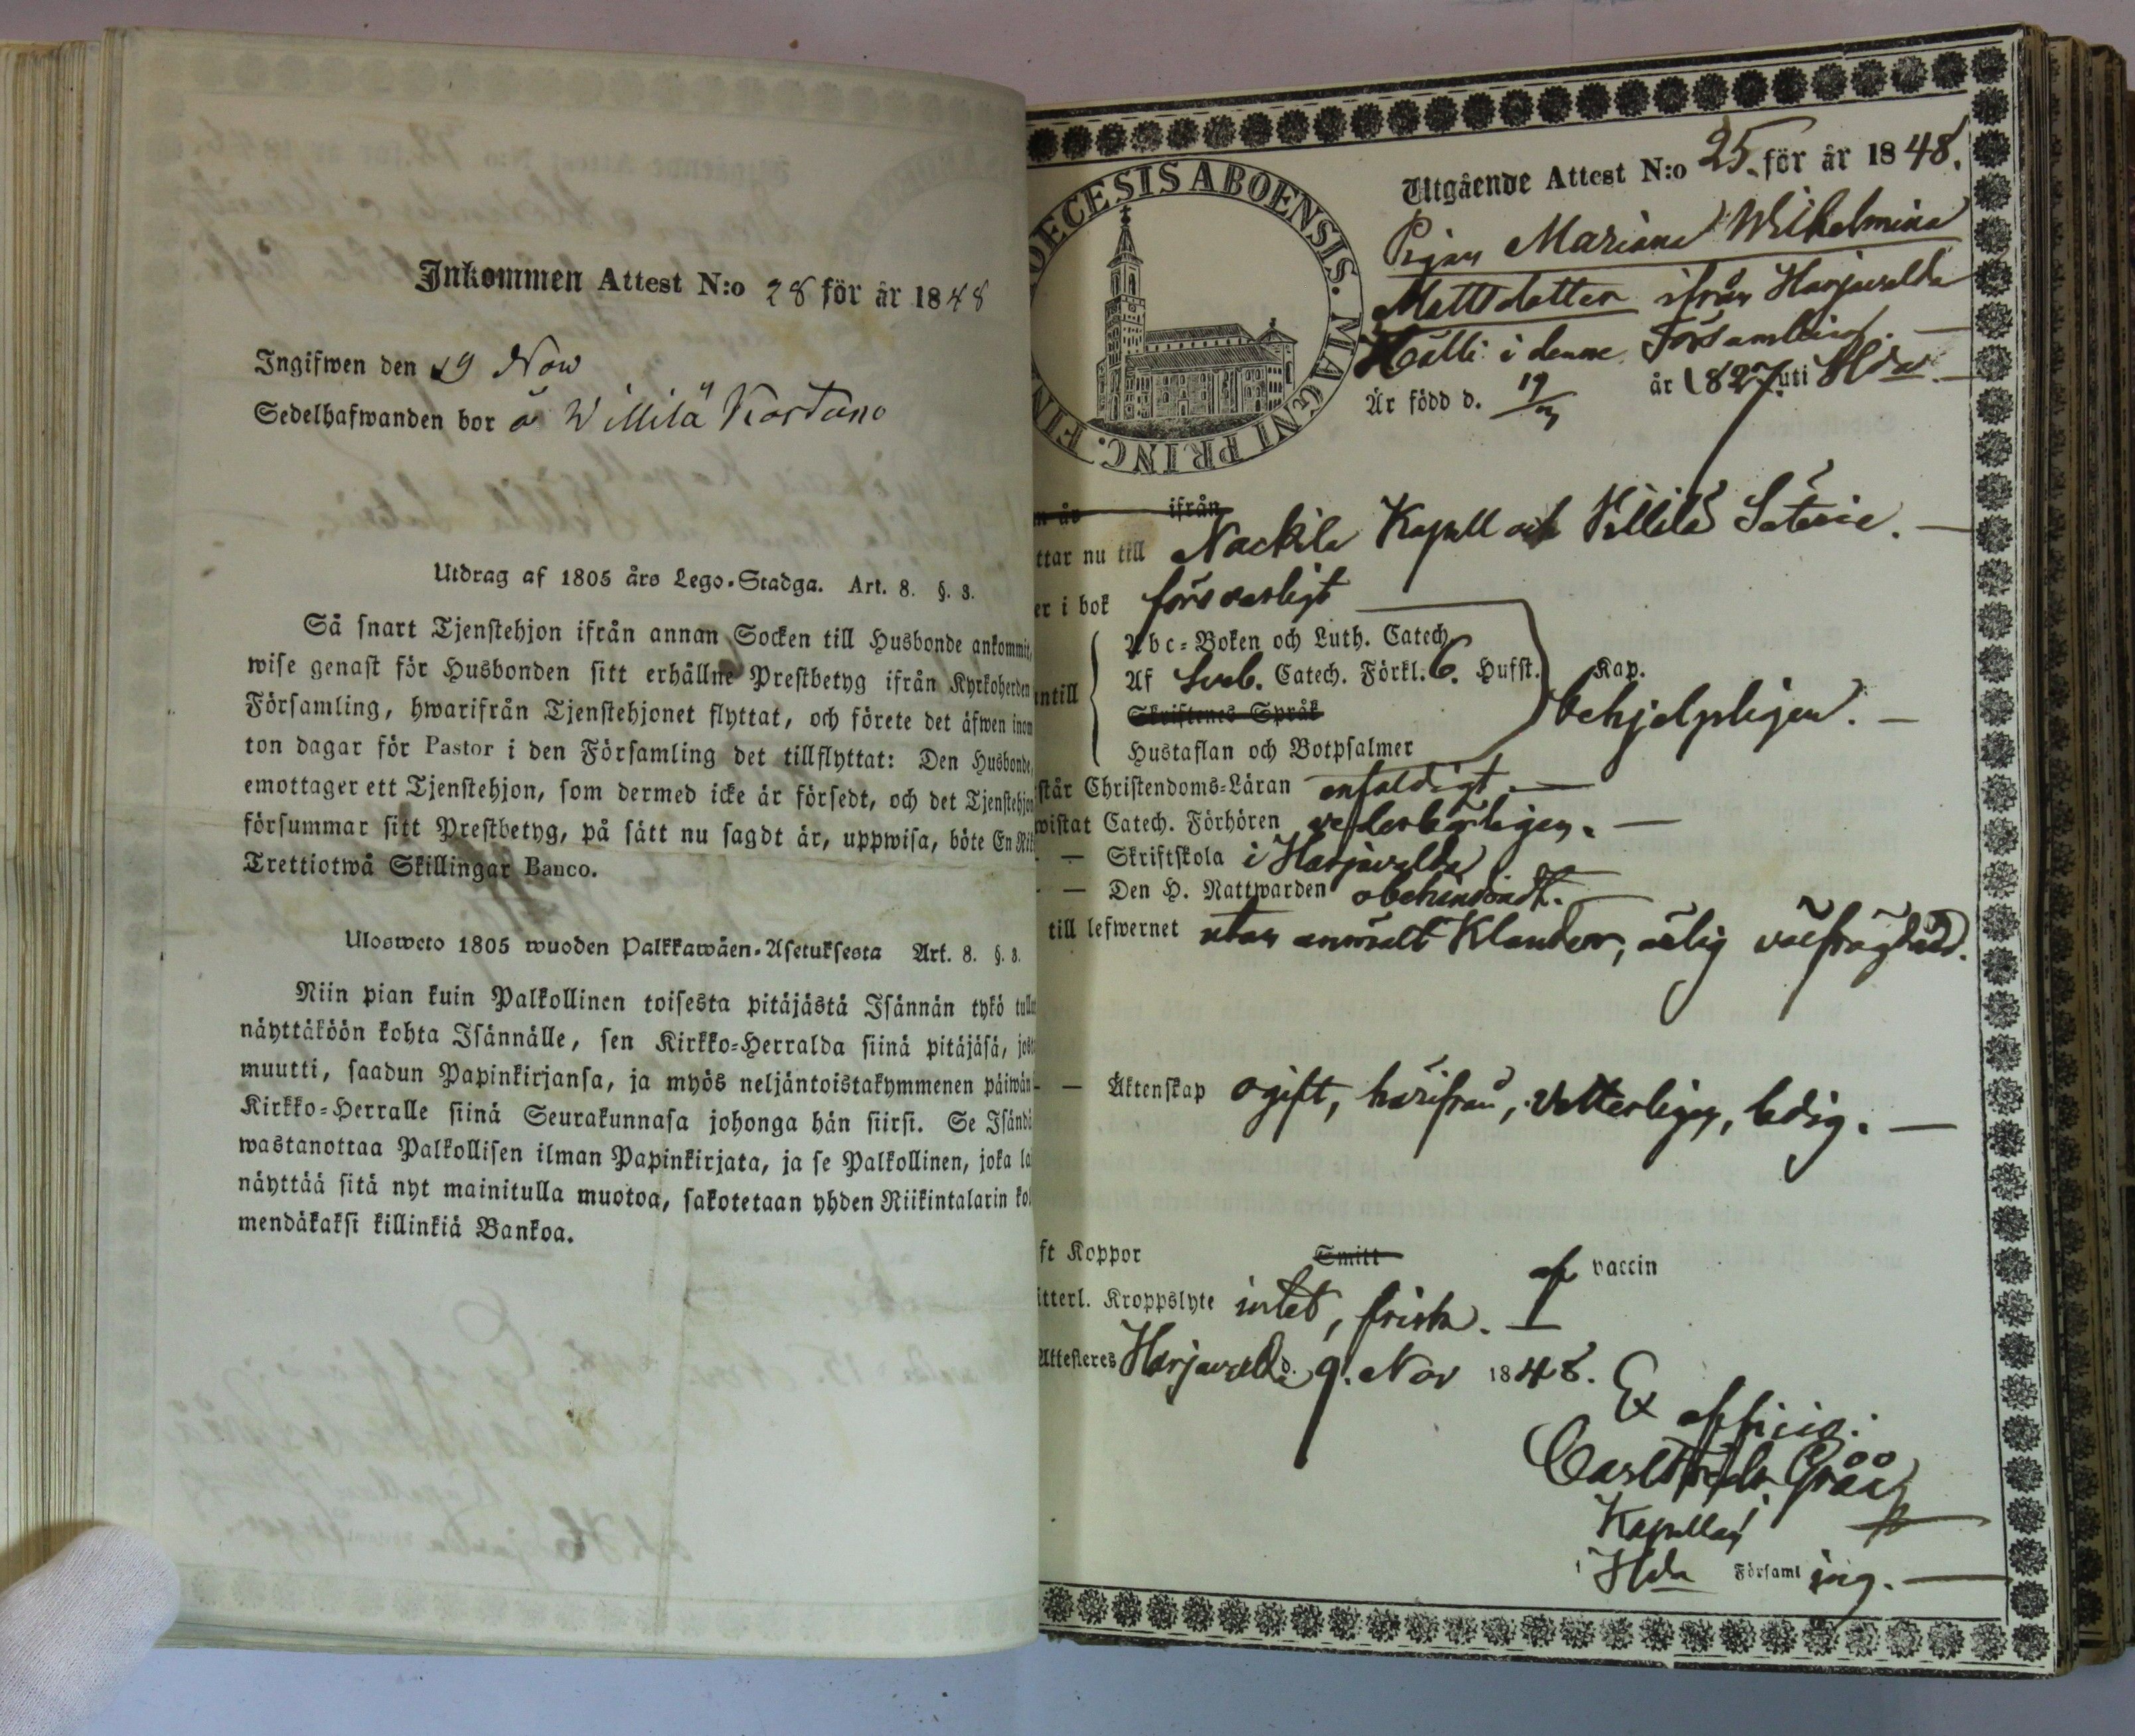 Inkommen Attest N:o 28 för år 1848
Ingifwen den 19 Nov
Sedelhafwanden bor å Willilä
Utdrag af 1805 års Lego-Stadga. Art. 8. §. 3.
Så snart Tjenstehjon ifrån annan Socken till Husbonde ankommit,
wise genast för Husbonden sitt erhållne Prestbetyg ifrån Kyrkoherden
Församling, hwarifrån Tjenstehjonet flyttat, och förete det äfwen inom
ton dagar för Pastor i den Församling det tillflyttat: Den Husbonde,
emottager ett Tjenstehjon, som dermed icke är försedt, och det Tjenstehjon
försummar sitt Prestbetyg, på sätt nu sagdt är, uppwisa, böte En Rik
Trettiotwå Skillingar Banco.
Ulosweto 1805 wuoden Palkkawäen-Asetuksesta Art. 8. §. 3.
Niin pian kuin Palkollinen toisesta pitäjästä Isännän tykö tullu
näyttäköön kohta Isännälle, sen Kirkko-Herralda siinä pitäjäsä, josta
muutti, saadun Papinkirjansa, ja myös neljäntoistakymmenen päiwän
Kirkko-Herralle siinä Seurakunnasa johonga hän siirsi. Se Isändä
wastanottaa Palkollisen ilman Papinkirjata, ja se Palkollinen, joka la
näyttää sitä nyt mainitulla muotoa, sakotetaan yhden Riikintalarin kol
mendäkaksi killinkiä Bankoa.
DECESIS ABOENSIS. MAGNI PRINC. FIN
Utgående Attest N:o 25. för år 1848.
Pigan Mariana Wilhelmina
Mattsdotter ifrån Harjavalda
Hälli i denne Församling.
Är född d. 19/ år 1827 uti Hda
n år ifrån
ttar nu till Nackila Kapell och Villilä Säterie.
er i bok försvarligt
ntill
Abc-Boken och Luth. Catech.
Af Sveb. Catech. Förkl. 6. Hufst. Kap.
Skriftenes Språk
behjelpligen.
Hustaflan och Botpsalmer
står Christendoms-Läran enfaldigt.
wistat Catech. Förhören vederbörligen.
— Skriftskola i Harjavalda
— Den H. Nattwarden obehindradt.
till lefwernet utan anmält Klander, ärlig välfrägdad.
— Äktenskap ogift, härifrån, ledig.
ft Koppor Smitt af vaccin
tterl. Kroppslyte intet, frisk.
Attesteres Harjavalda d. 9. Nov 1848.
Ex officio.
Carl Fredr. Gråå
Kapellan
i Hda Församling.